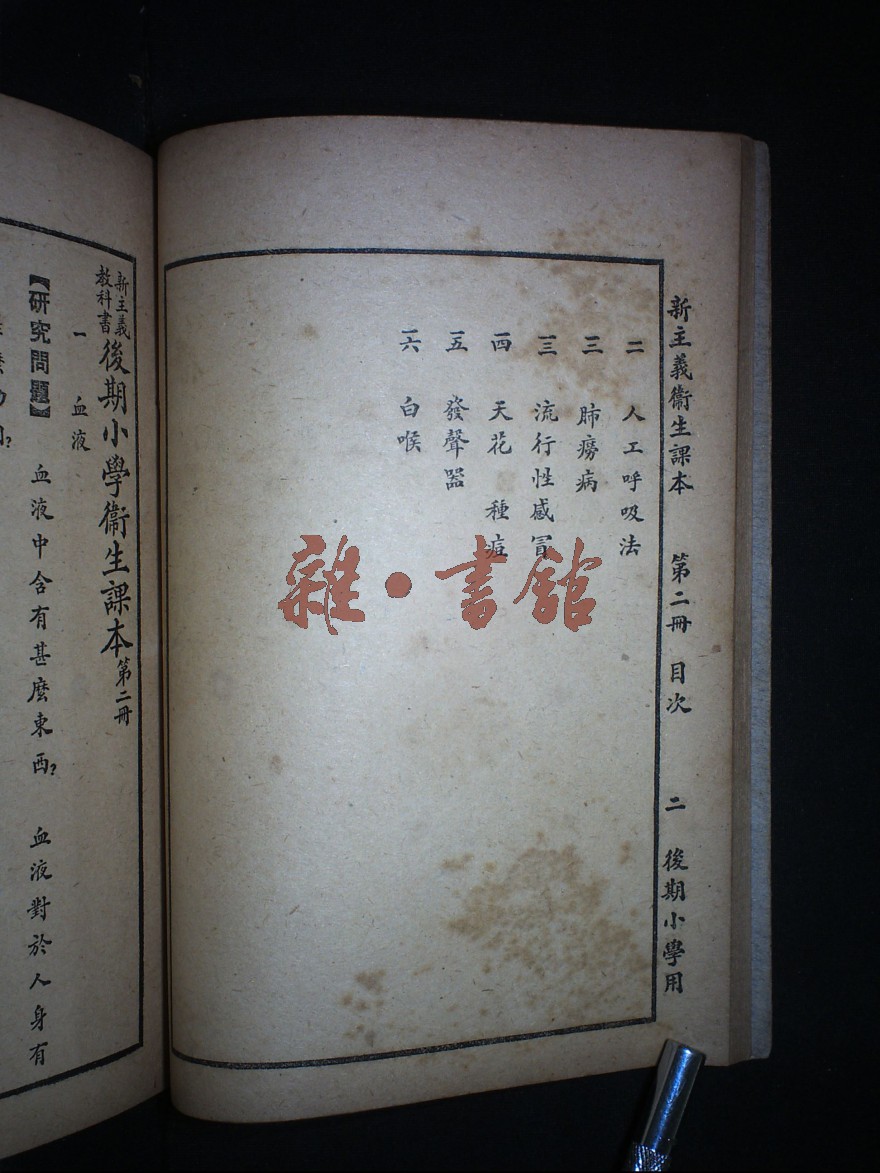 新主義衛生課本 第二冊 目次 二 後期小學用
一一 人工呼吸法
一二 肺癆病
一三 流行性感冒
一四 天花 種痘
一五 發聲器
一六 白喉
雜・書館
新主義教科書 後期小學衛生課本 第二冊
一 血液
【研究問題】 血液中含有甚麼東西? 血液對於人身有